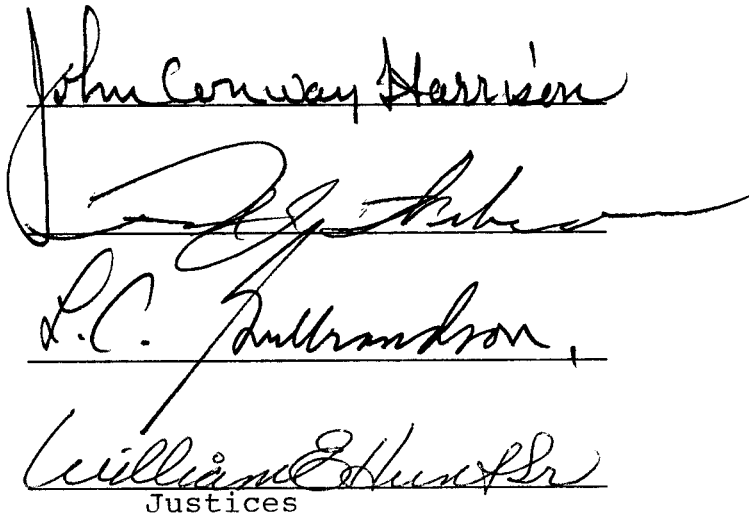 John Conway Harrison
L.C. Gulbrandson,
William E. Hunt Sr
Justices